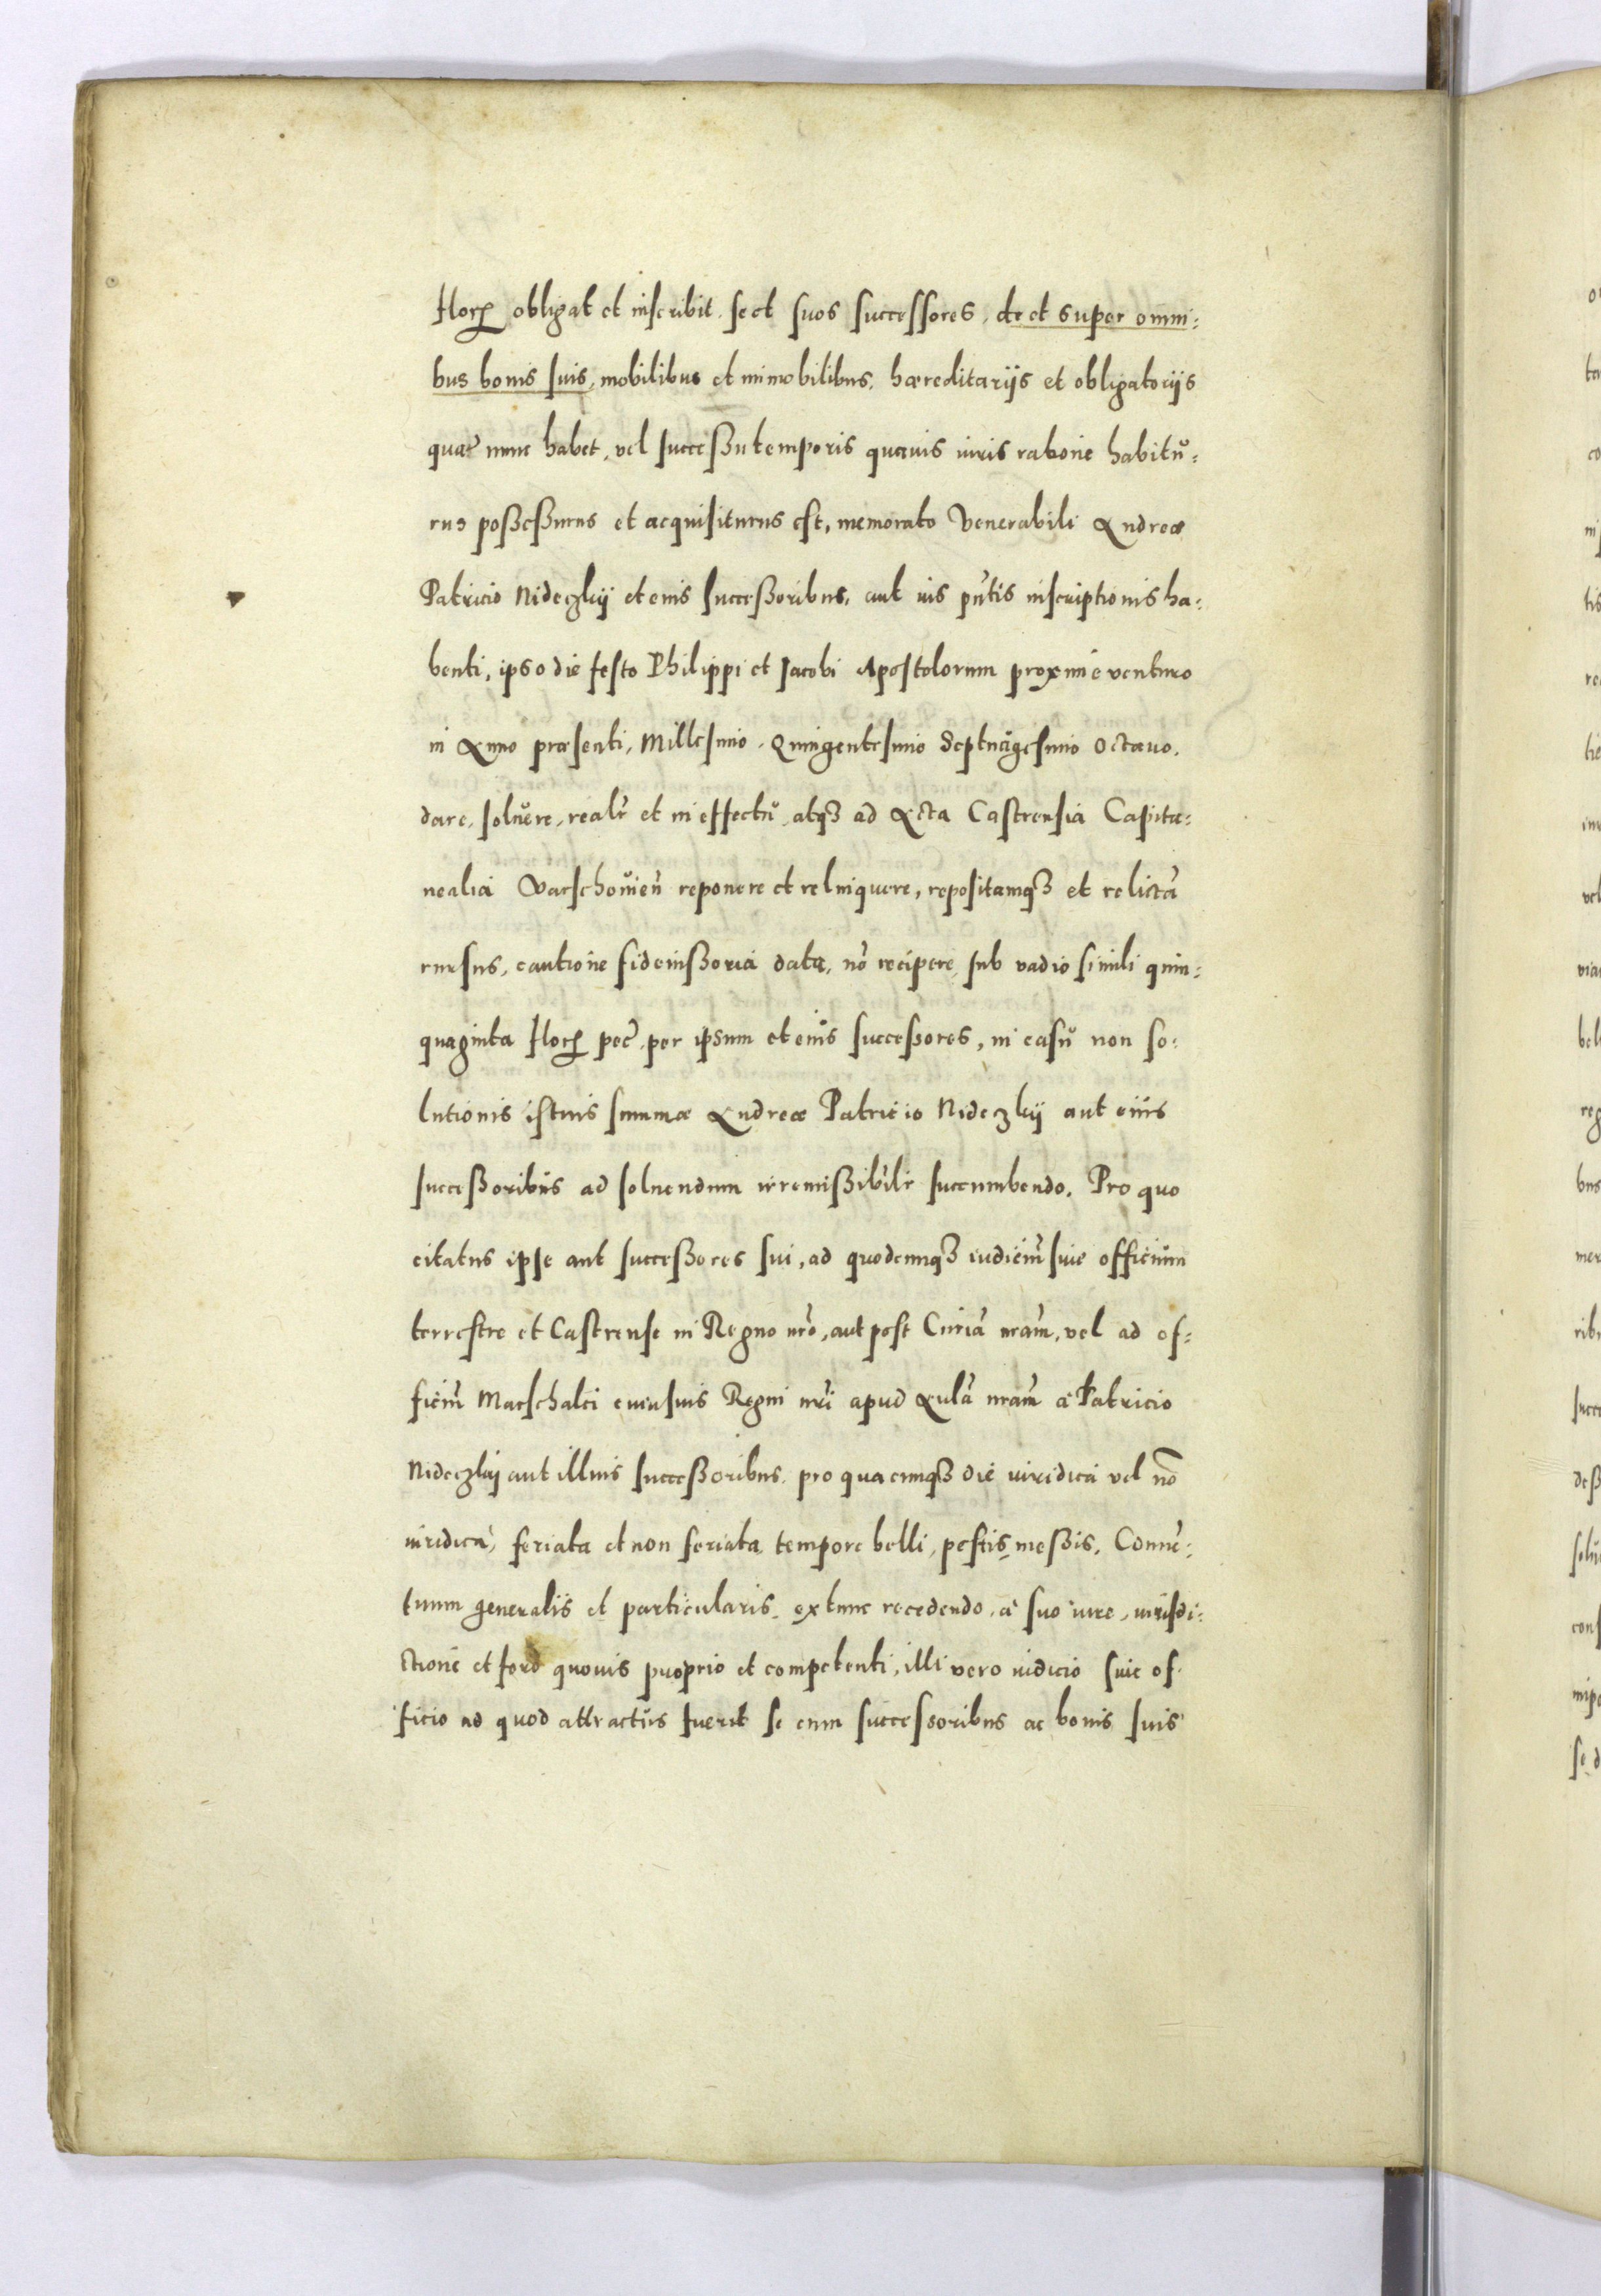 Florꝝ obligat et inscribit. se et suos successores, de et super omni:
bus bonis suis, mobilibus et immobilibus, hæreditarijs et obligatorijs
quæ nunc habet, vel successu temporis quauis iuris ratione habitŭ:
rus possessurus et acquisiturus est, memorato Venerabili Andreæ
Patricio Nideczkij et eius successoribus, aut ius pn̄tis inscriptionis ha:
benti, ipso die festo Philippi et Jacobi Apostolorum proximè venturo
in Anno præsenti, Millesimo, Quingentesimo Septuagesimo Octauo,
dare, soluere, realr̄ et in effectŭ, atqꝫ ad Acta Castrensia Capita:
nealia Varschouien̄ reponere et relinquere, repositamqꝫ et relictā
rursus, cautione fideiussoria data, nō recipere, sub vadio simili quin:
quaginta Florꝝ pec̄, per ipsum et eius successores, in casŭ non so:
lutionis istius summæ Andreæ Patricio Nideczkij aut eius
successoribus ad soluendum irremissibilr̄ succumbendo. Pro quo
citatus ipse aut successores sui, ad quodcunqꝫ iudiciū siue officium
terrestre et Castrense in Regno nr̄o, aut post Curiā nr̄am, vel ad of:
ficiū Marschalci cuiusuis Regni nr̄i apud Aulā nr̄am à Patricio
Nideczkij aut illius successoribus, pro quacunqꝫ die iuridica vel nō
iuridica, feriata et non feriata, tempore belli, pestis, messis, Conuē:
tuum generalis et particularis, ex tunc recedendo, à suo iure, iurisdi:
ctione et foro quouis proprio et competenti, illi vero iudicio siue of:
ficio ad quod attractus fuerit se cum successoribus ac bonis suis